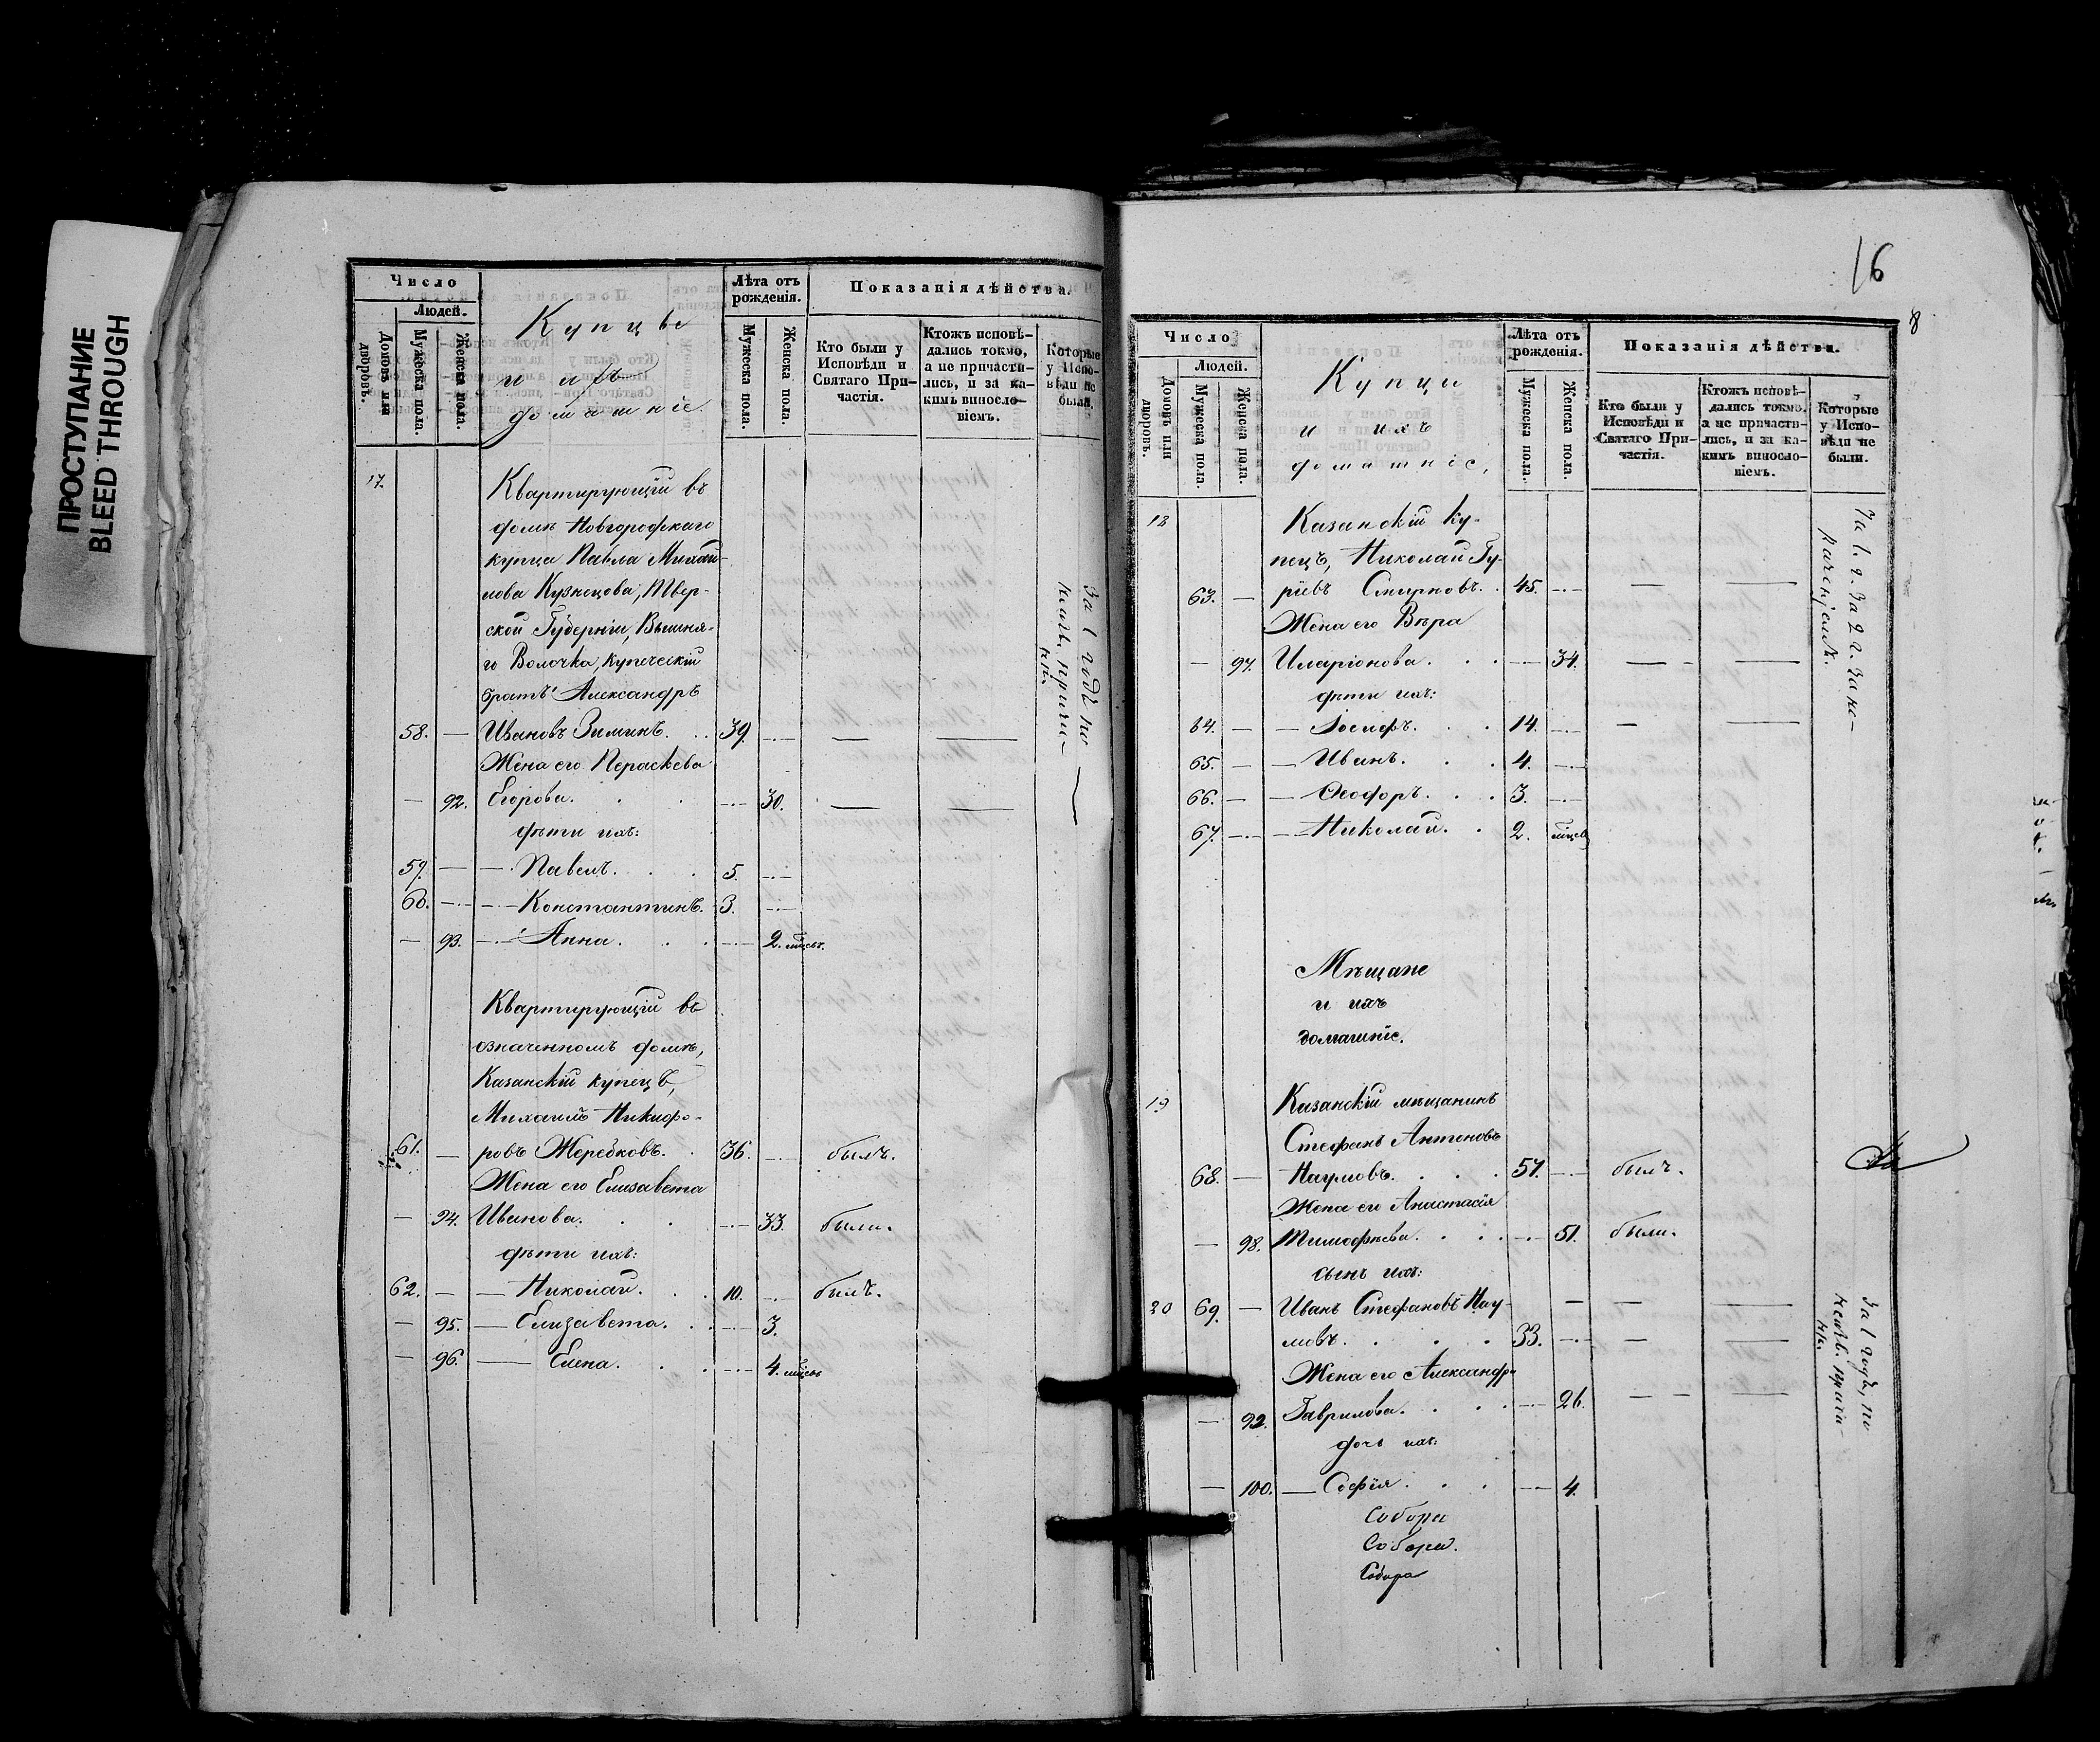 ПРОСТУПАНИЕ
BLEED THROUGH
Число
Людей.
Домовъ или дворовъ.
Мужеска пола.
Женска пола.
Купцы
и ихъ
домашніе.
Лѣта отъ рожденія.
Мужеска пола.
Женска пола
Показанія дѣйства.
Кто были у Исповѣди и Святаго Причастія.
Ктожъ исповѣдались токмо, а не причастились, и за какимъ винословіемъ.
Которые у Исповѣди не были.
17.
Квартирующій въ
домѣ Новгородскаго
купца Павла Михай-
лова Кузнецова, Твер-
ской Губерніи, Вышня-
го Волочка, купеческій
братъ Александръ
58. — Ивановъ Зиминъ. 39. — — —
Жена его Параскева
— 92. Егорова. — 30. — —
дѣти ихъ:
59. — — Павелъ. 5. —
60. — — Константинъ. 3. —
— 93. — Анна. — 2. мѣсяц.
За 1 годъ по
неимъ. причи-
нѣ.
Квартирующій въ
означенномъ домѣ,
Казанскій купецъ,
Михаилъ Никифо-
61. — ровъ Жеребковъ. 36. — былъ.
Жена его Елизавета
— 94. Иванова. — 33. были.
дѣти ихъ:
62. — — Николай. 10. — былъ.
— 95. — Елизавета. — 3.
— 96. — Елена. — 4. мѣсяц.
16
8
Число
Людей.
Домовъ или дворовъ.
Мужеска пола.
Женска пола.
Купцы
и ихъ
домашніе,
Лѣта отъ рожденія.
Мужеска пола.
Женска пола
Показанія дѣйства.
Кто были у Исповѣди и Святаго Причастія.
Ктожъ исповѣдались токмо, а не причастились, и за какимъ винословіемъ.
Которые у Исповѣди не были.
18
Казанскій ку-
пецъ, Николай Гу-
63. — рьевъ Смирновъ. 45. — — —
Жена его Вѣра
— 97. Иларіонова. — 34. — —
дѣти ихъ:
64. — — Іосифъ. 14. — — —
65. — — Иванъ. 4. —
66. — — Ѳеодоръ. 3. —
67. — — Николай. 2. мѣсяц.
За 1. г. За 2 г. За не-
раченіемъ.
Мѣщане
и ихъ
домашніе.
19
Казанскій мѣщанинъ
Стефанъ Антоновъ
68. — Наумовъ. 57. — былъ.
Жена его Анастасія
— 98. Тимофѣева. — 51. были.
сынъ ихъ:
20 69. — Иванъ Стефановъ Нау- — — —
мовъ. 33. — — —
Жена его Александра
— 92. Гаврилова. — 26. — —
дочь ихъ:
— 100. — Софія. — 4.
За 1 годъ, по
неимъ. причи-
нѣ.
Собора
Собора.
Собора